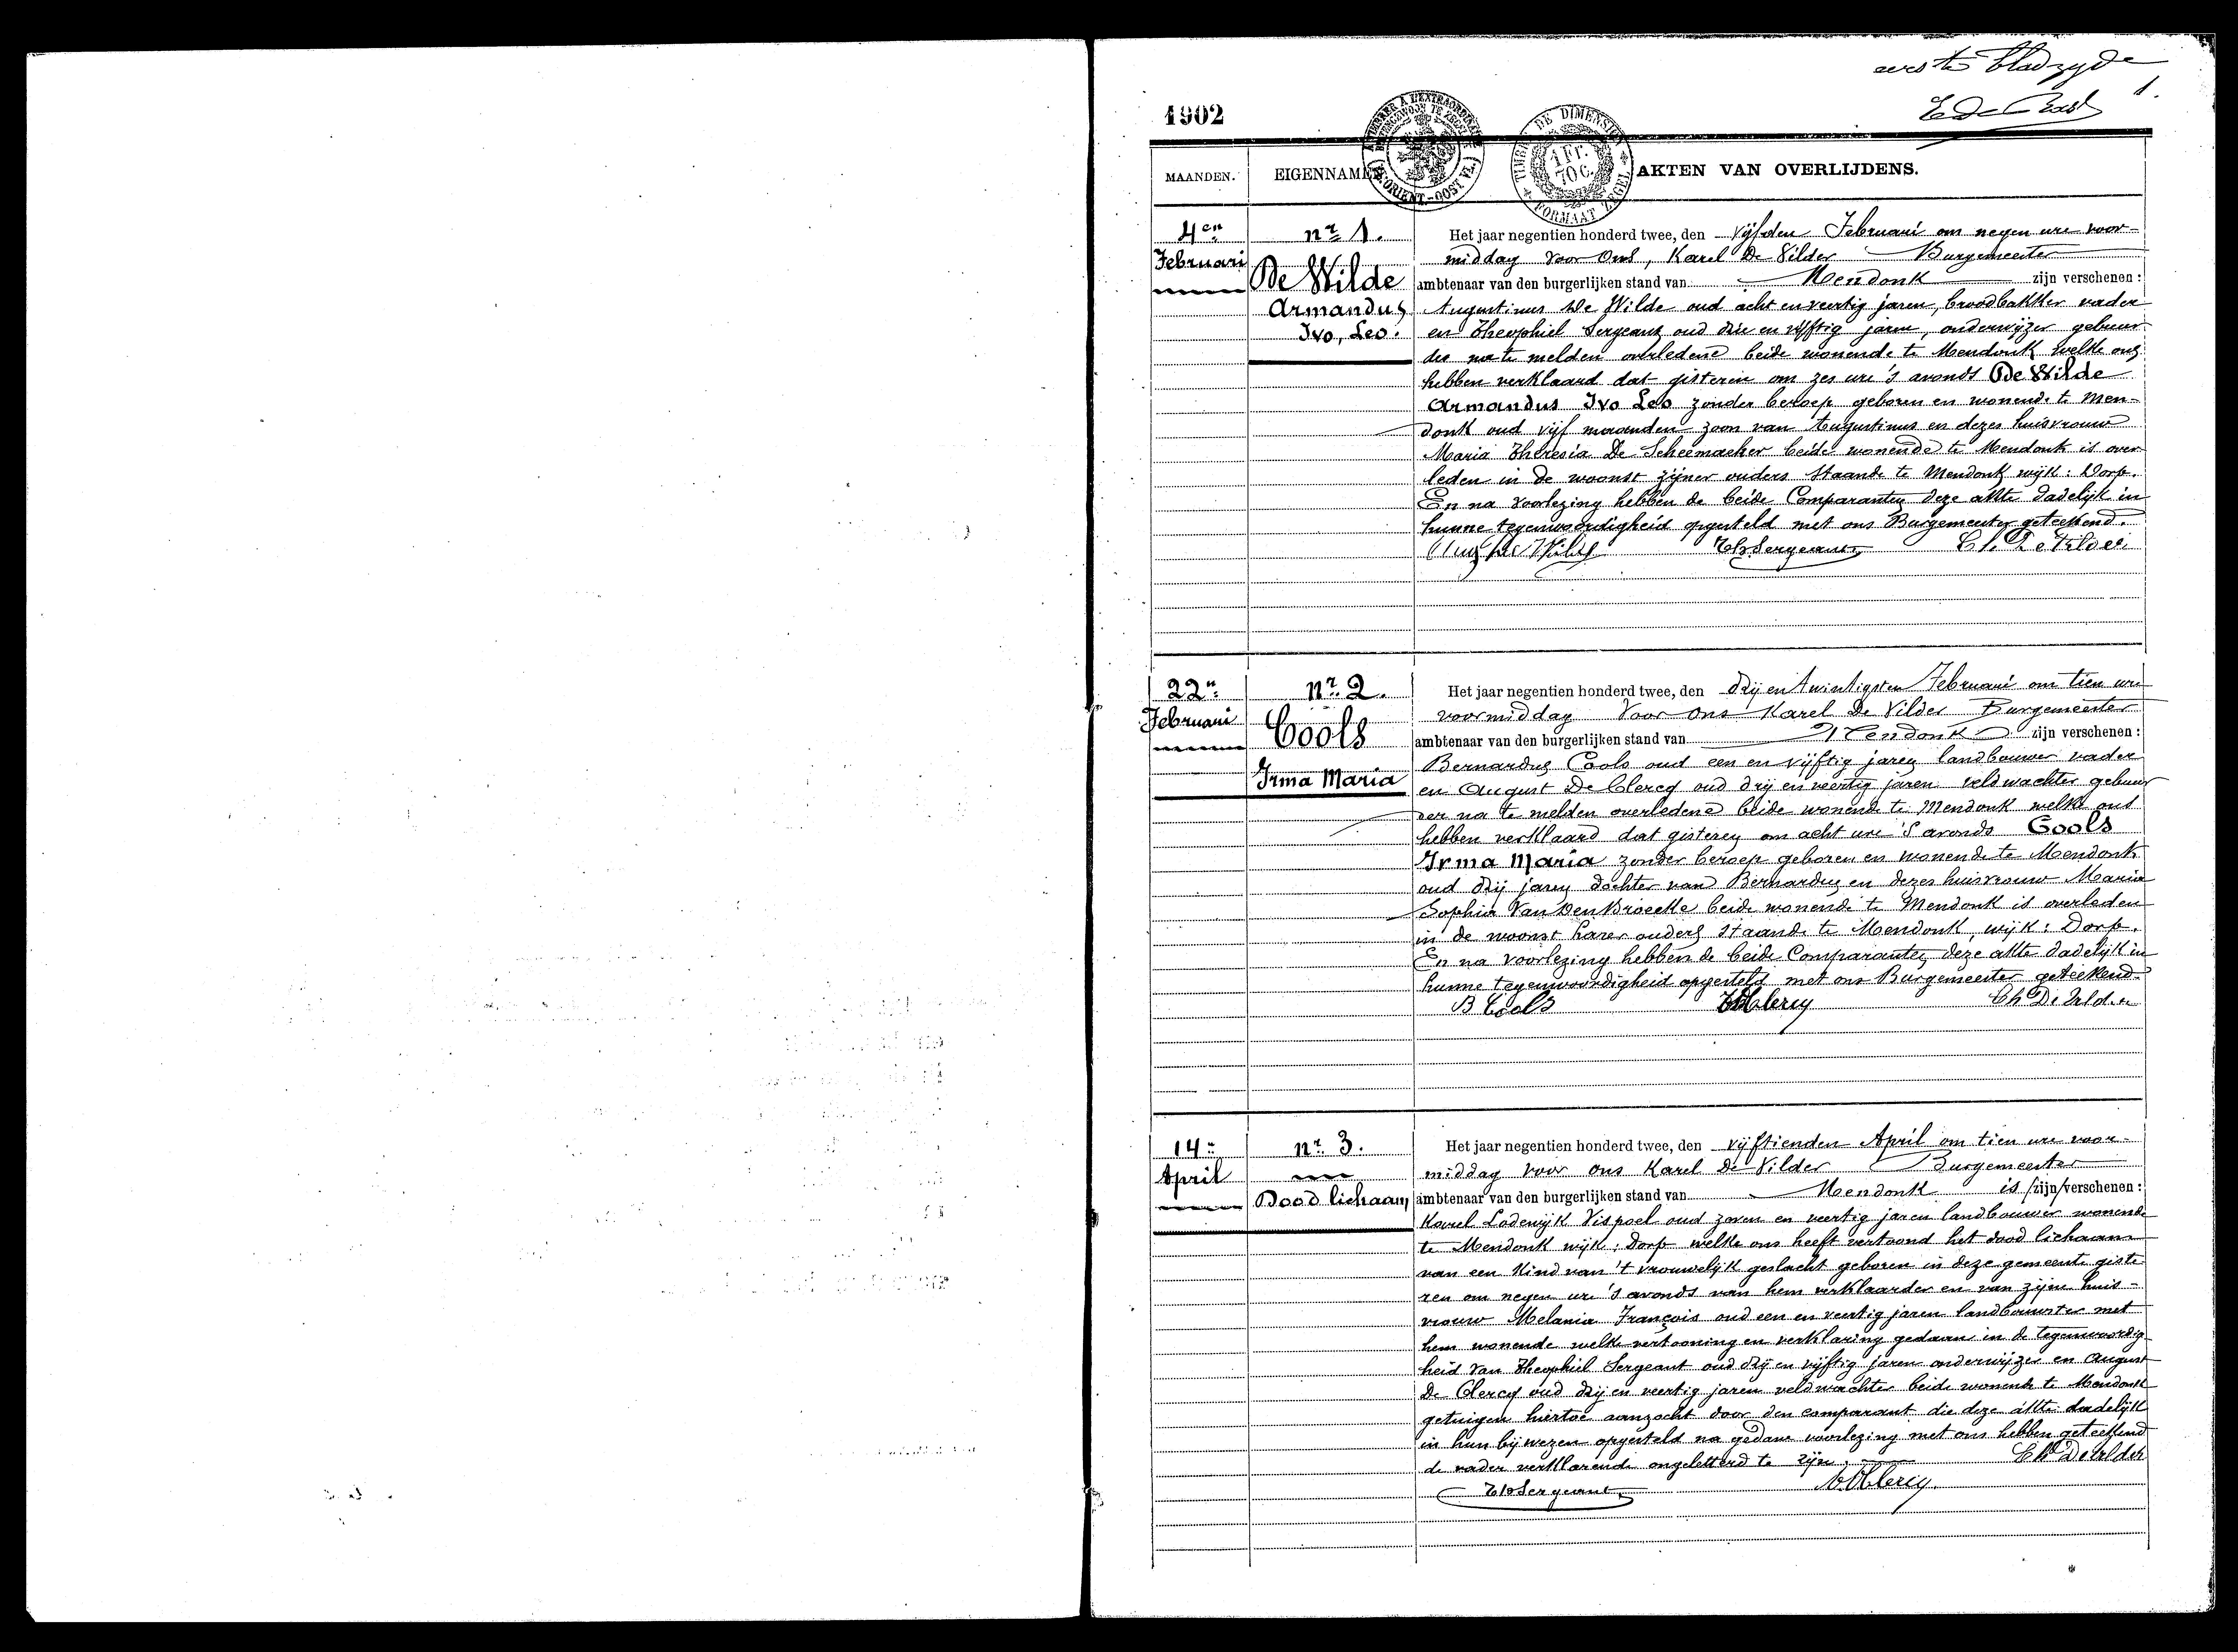 eerste bladzyde
1.
1902
TIMBRE DE DIMENSION
1 Fr.
70 C.
FORMAAT ZEGEL
MAANDEN. EIGENNAMEN AKTEN VAN OVERLIJDENS.
4en nr 1. Het jaar negentien honderd twee, den vijfden Februari om negen ure voor-
Februari middag voor Ons, Karel De Vilder Burgemeester
De Wilde ambtenaar van den burgerlijken stand van Mendonk zijn verschenen:
Armandus Augustinus De Wilde oud acht en veertig jaren, broodbakker vader
Ivo, Leo. en Theophiel Sergeant oud drie en vijftig jaren, onderwijzer gebuur
der na te melden overledene beide wonende te Mendonk welke ons
hebben verklaard dat gisteren om zes ure 's avonds De Wilde
Armandus Ivo Leo zonder beroep geboren en wonende te Men-
donk oud vijf maanden zoon van Augustinus en dezes huisvrouw
Maria Theresia De Scheemaeker beide wonende te Mendonk is over
leden in de woonst zijner ouders staande te Mendonk wijk: Dorp.
En na voorlezing hebben de beide Comparanten deze akte dadelijk in
hunne tegenwoordigheid opgesteld met ons Burgemeester geteekend.
Aug De Wilde Th Sergeant Ch. De Vilder
22n nr 2. Het jaar negentien honderd twee, den drij en twintigsten Februari om tien ure
Februari voormiddag voor ons Karel De Vilder Burgemeester
Cools ambtenaar van den burgerlijken stand van Mendonk zijn verschenen:
Bernardus Cools oud een en vijftig jaren landbouwer vader
Irma Maria en August De Clercq oud drij en veertig jaren veldwachter gebuur
der na te melden overledene beide wonende te Mendonk welke ons
hebben verklaard dat gisteren om acht ure 's avonds Cools
Irma Maria zonder beroep geboren en wonende te Mendonk
oud drij jaren dochter van Bernardus en dezes huisvrouw Maria
Sophia Van Den Broecke beide wonende te Mendonk is overleden
in de woonst harer ouders staande te Mendonk, wijk: Dorp.
En na voorlezing hebben de beide Comparanten deze akte dadelijk in
hunne tegenwoordigheid opgesteld met ons Burgemeester geteekend.
B Cools A De Clercq Ch De Vilder
14n nr 3. Het jaar negentien honderd twee, den vijftienden April om tien ure voor-
April middag voor ons Karel De Vilder Burgemeester
Dood lichaam ambtenaar van den burgerlijken stand van Mendonk is /zijn/ verschenen:
Karel Lodewijk Vispoel oud zeven en veertig jaren landbouwer wonende
te Mendonk wijk: Dorp welke ons heeft vertoond het dood lichaam
van een kind van 't vrouwelijk geslacht geboren in deze gemeente giste
ren om negen ure 's avonds van hem verklaarder en van zijne huis-
vrouw Melania François oud een en veertig jaren landbouwster met
hem wonende welke vertooning en verklaring gedaan in de tegenwoordig
heid van Theophiel Sergeant oud drij en vijftig jaren onderwijzer en August
De Clercq oud drij en veertig jaren veldwachter beide wonende te Mendonk
getuigen hiertoe aanzocht door den comparant die deze akte dadelijk
in hun bijwezen opgesteld na gedane voorlezing met ons hebben geteekend
de vader verklarende ongeletterd te zijn. Ch De Vilder
Th Sergeant A De Clercq